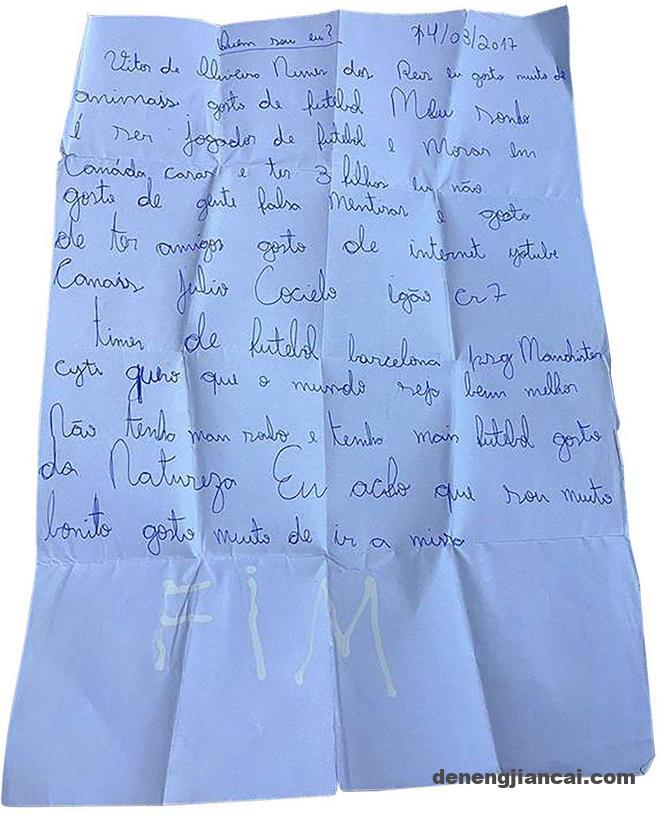 Quem sou eu? 14/03/2017
Vitor de Oliveira Nunes dos Reis eu gosto muito de
animais gosto de futebol Meu sonho
é ser jogador de futebol e Morar em
Canáda casar e ter 3 filhos eu não
gosto de gente falsa Mentiras e gosto
de ter amigos gosto de internet yotube
Canais Julio Cocielo igão cr7
times de futebol barcelona psg Manchister
cyti quero que o mundo seja bem melhor
Não tenha mas robo e tenha mais futebol gosto
da Natureza Eu acho que sou muito
bonito gosto muito de ir a missa
FiM
denengjiancai.com